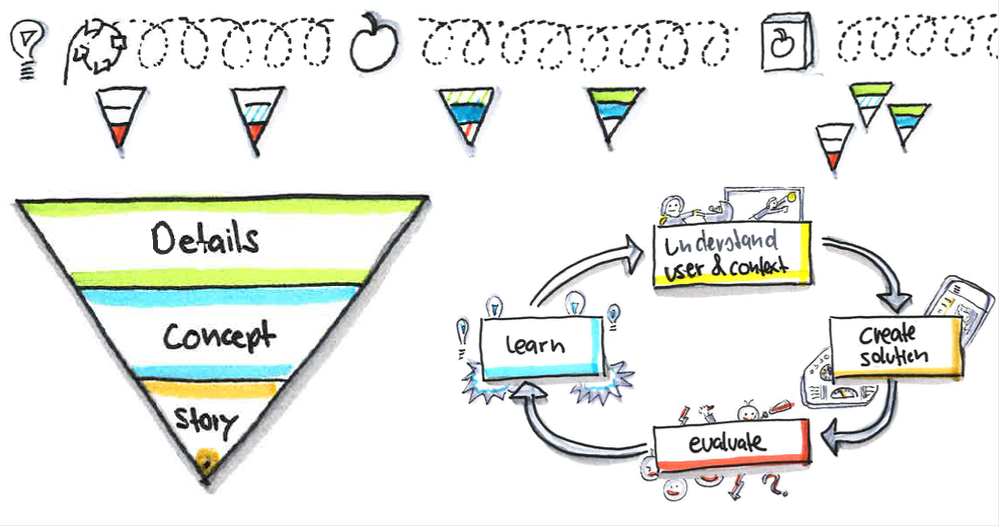 Details
Concept
Story
Understand
user & context
create
solution
evaluate
learn